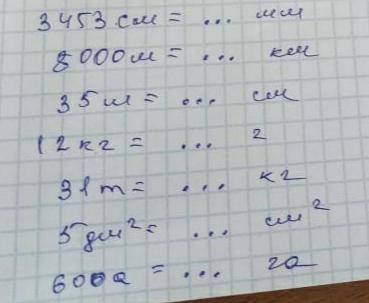 3453 см = ... мм
8000 м = ... км
35 м = ... см
12 кг = ... г
31 т = ... кг
5 дм² = ... см²
600 а = ... га